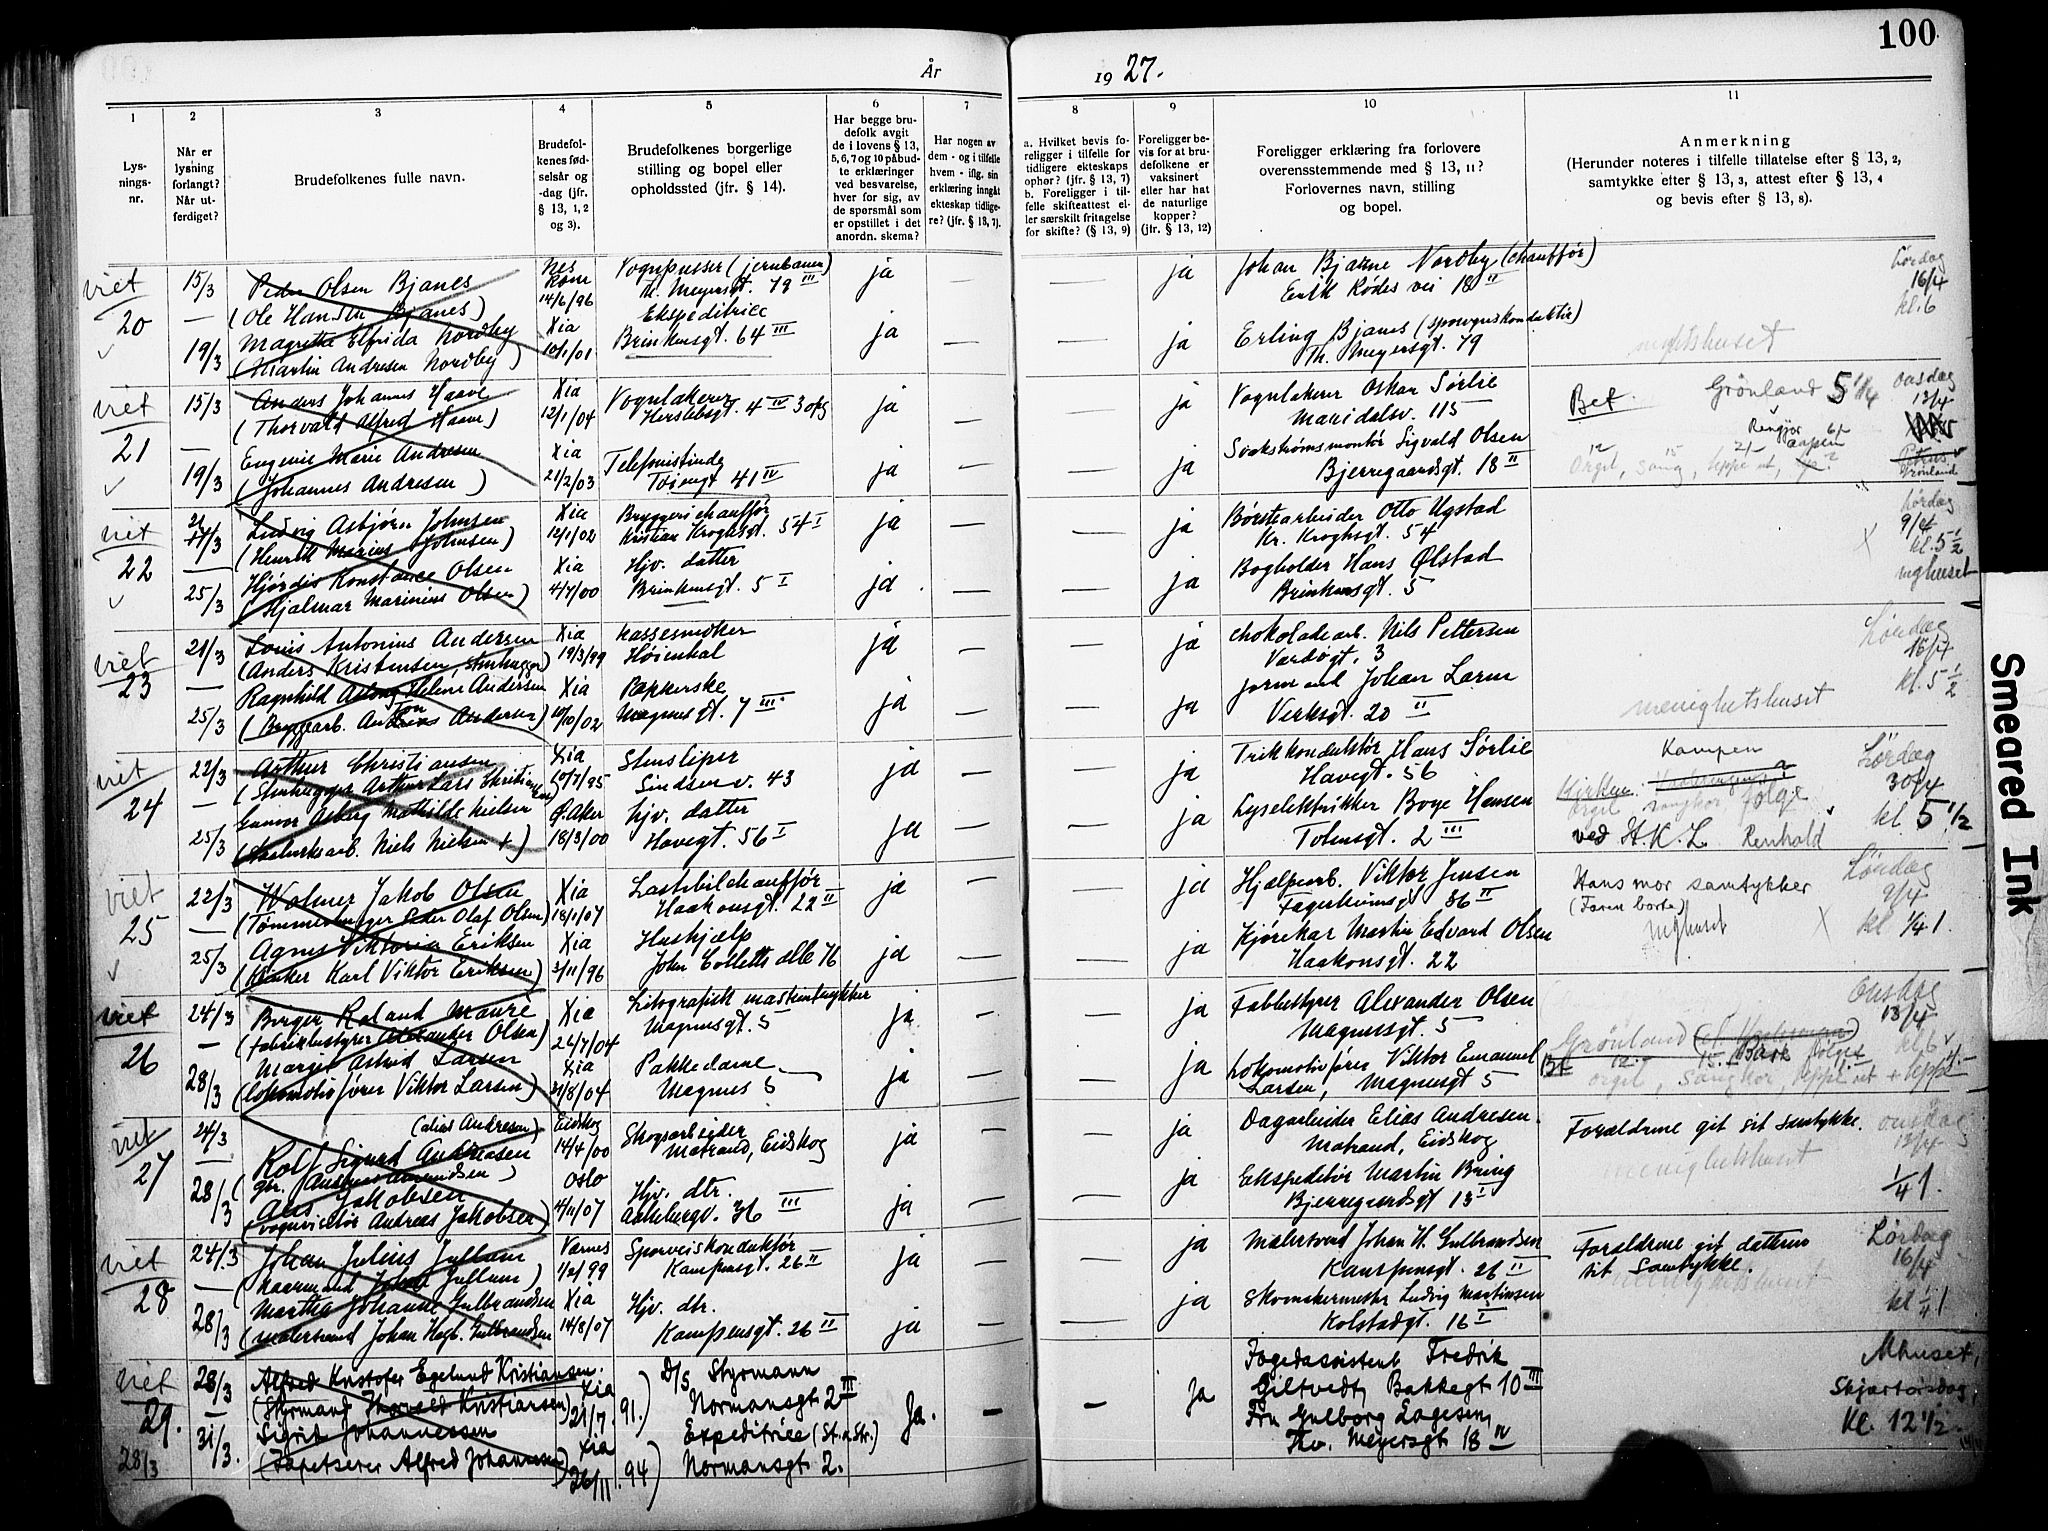 100
År
19 27.
1
2
3
4
5
6
7
8
9
10
11
Lysnings-
nr.
Når er
lysning
forlangt?
Når ut-
ferdiget?
Brudefolkenes fulle navn.
Brudefol-
kenes fød-
selsår og
-dag (jfr.
§ 13, 1, 2
og 3).
Brudefolkenes borgerlige
stilling og bopel eller
opholdssted (jfr. § 14).
Har begge bru-
defolk avgit
de i lovens § 13,
5, 6, 7 og 10 påbud-
te erklæringer
ved besvarelse,
hver for sig, av
de spørsmål som
er opstillet i det
anordn. skema?
Har nogen av
dem - og i tilfelle
hvem - iflg. sin
erklæring inngåt
ekteskap tidlige-
re? (jfr. § 13, 7).
a. Hvilket bevis fo-
religger i tilfelle for
tidligere ekteskaps
ophør? (jfr. § 13, 7)
b. Foreligger i til-
felle skifteattest el-
ler særskilt fritagelse
for skifte? (§ 13, 9)
Foreligger be-
vis for at bru-
defolkene er
vaksinert
eller har hat
de naturlige
kopper?
(jfr. § 13, 12)
Foreligger erklæring fra forlovere
overensstemmende med § 13, 11?
Forlovernes navn, stilling
og bopel.
Anmerkning
(Herunder noteres i tilfelle tillatelse efter § 13, 2,
samtykke efter § 13, 3, attest efter § 13, 4
og bevis efter § 13, 8).
viet
20
15/3
—
19/3
Peder Olsen Bjanes
(Ole Hansen Bjanes)
Magrethe Elfrida Nordby
(Martin Andresen Nordby
Nes
Rom
14/6/96
Xia
10/1/01
Vognpusser (jernbanen)
Th. Meyersgt. 79 III
Ekspeditrice
Brinkensgt. 64 III
ja
ja
—
—
ja
ja
Johan Bjarne Nordby (chauffør)
Erik Rødes vei 18 II
Erling Bjanes (sporvognskonduktør)
Th. Meyersgt. 79
menighetshuset
Lørdag
16/4
kl. 6
viet
21
15/3
—
19/3
Anders Johannes Haave
(Thorvald Alfred Haave)
Eugenie Marie Andresen
(Johannes Andresen)
Xia
12/1/04
Xia
21/2/03
Vognlakerer
Herslebsgt. 4 IV 3 opg
Telefonistinde
Tøiengt 41 IV
ja
ja
ja
ja
Vognlakerer Oskar Sørlie
Maridalsv. 115
Svakstrømsmontør Sigvald Olsen
Bjerregaardsgt. 18 II
Bet. Grönland 5 1/4
Onsdag
13/4
Orgel, sang, teppe ut,
Grönland
viet
22
21/3
—
25/3
Ludvig Asbjørn Johnsen
(Henrik Marius Johnsen)
Hjørdis Konstance Olsen
(Hjalmar Marinius Olsen)
Xia
12/1/02
Xia
4/7/00
Bryggerichauffør
Kristian Kroghsgt. 54 I
Hjv. datter
Brinkensgt. 5 I
ja
ja
ja
ja
Børstearbeider Otto Ugstad
Kr. Kroghsgt. 54
Bogholder Hans Ølstad
Brinkensgt. 5
Lørdag
9/4
kl. 5 1/2
mghuset
viet
23
21/3
—
25/3
Louis Antonius Andersen
(Anders Kristensen, Stenhugger)
Ragnhild Aslaug Helene Andersen
(Bryggearb. Anton Andersen)
Xia
19/3/99
Xia
10/10/02
Kassesmøker
Høienhal
Papærske
Magnusgt. 7 III
ja
ja
ja
ja
chokoladearb. Nils Pettersen
Vardøgt. 3
formand Johan Larm
Verksgt. 20 II
menighetshuset
Lørdag
16/4
kl. 5 1/2
viet
24
22/3
—
25/3
Arthur Christiansen
(Stenhugger Arthur Lars Christiansen
Gunvor Asborg Mathilde Nielsen
Niels Nielsen +)
Xia
10/7/95
Ø. Aker
18/3/00
Stensliper
Sindsenv. 43
hjv. datter
Havegt. 56 I
ja
ja
ja
ja
Trikkonduktør Hans Sørlie
Havegt. 56
Lyselektrikker Boye Hansen
Toiensgt. 2 III
Kampen
Kirken
Orgel sangkor følge
ved H.K.L. Renhold
Lördag
30/4
kl. 5 1/2
viet
25
22/3
—
25/3
Wolmer Jakob Olsen
(Tømmerhugger Peder Olaf Olsen)
Agnes Viktoria Eriksen
Karl Viktor Eriksen)
Xia
18/1/07
Xia
3/11/96
Lastebilchauffør
Haakonsgt. 22 II
Hushjælp
John Colletts alle 76
ja
ja
ja
ja
Hjælpearb. Viktor Jensen
Fagerheimsgt 36 II
Kjørekar Martin Edvard Olsen
Haakonsgt. 22
Hans mor samtykker
(Faren borte)
Mghuset
Lördag
9/4
kl. 1/4 1.
viet
26
24/3
—
28/3
Birger Roland Mauré
(Fabrikbestyrer Alexander Olsen)
Margit Astrid Larsen
(Lokomotivfører Viktor Larsen)
Xia
26/7/04
Xia
31/8/04
Litografisk maskintrykker
Magnusgt. 5
Pakkedame
Magnus 5
ja
ja
ja
ja
Fabbestyrer Alexander Olsen
Magnusgt. 5
Lokomotivfører Viktor Emanuel
Larsen, Magnusgt 5
Grönland
Bet
orgel, sangkor, teppe ut
Onsdag
13/4
kl 6
viet
27
24/3
—
28/3
(alias Andresen)
Rolf Sigurd Andreasen
Aus Jakobsen
(vognvisitør Andreas Jakobsen)
Eidskog
14/4/00
Oslo
11/11/07
Skogsarbeider
Matrand, Eidskog
Hjv. dtr.
Aakebergv. 36 III
ja
ja
ja
ja
Dagarbeider Elias Andresen
Matrand, Eidskog
Ekspeditør Martin Bring
Bjerregaardsgt 13 I
Forældrene git sit samtykke.
menighetshuset
onsdag
13/4
1/4 1.
viet
28
24/3
—
28/3
Johan Julius Jullum
Jullum)
Martha Johanne Gulbrandsen
(Malersvend Johan Hagb. Gulbrandsen
Værnes
1/2/99
Xia
14/8/07
Sporveiskonduktør
Kampensgt. 26 II
Hjv. dtr.
Kampensgt. 26 II
ja
ja
ja
ja
Malersvend Johan H. Gulbrandsen
Kampensgt. 26 II
Skomakermester Ludvig Martinsen
Kolstadgt. 16 I
Forældrene git datteren
sit samtykke.
Lørdag
16/4
kl 1/4 1
viet
29.
28/3
28/3
—
31/3.
Alfred Kristofer Egelund Kristiansen.
(Styrmand Thorvald Kristiansen)
Sigrid Johannessen
(Tapetserer Alfred Johannessen)
Xia
21/7. 91.)
Xia
26/11. 94)
D/S Styrmann
Normansgt 2 III
Expeditrice (St. & Str.)
Normansgt 2.
Ja.
—
—
Ja
Fogedassistent Fredrik
Giltvedt, Bakkegt 10 III
Fru Gulborg Aagesen,
Thv. Meyersgt 18 IV
Mhuset,
Skjærtorsdag,
Kl. 12 1/2.
Smeared Ink